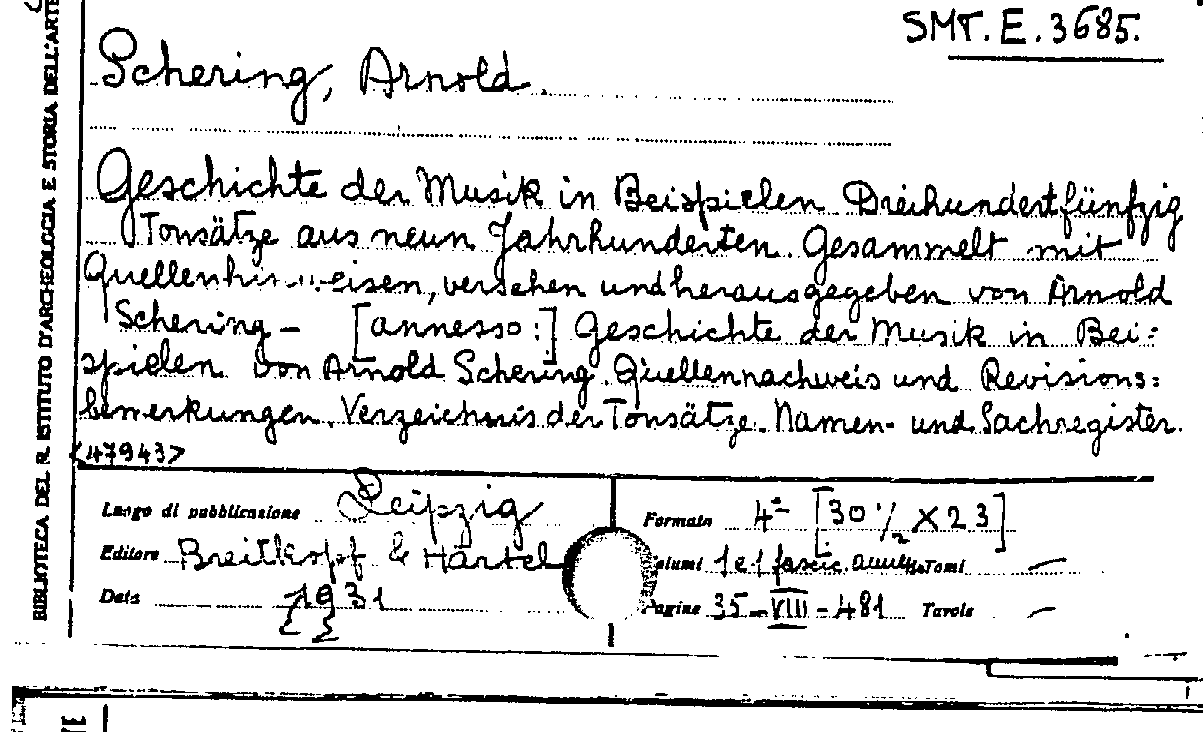 SMT. E. 3685.
Schering, Arnold.
Geschichte der Musik in Beispielen Dreihundertfünfzig
Tonsätze aus neun Jahrhunderten. Gesammelt mit
eisen, versehen und herausgegeben von Arnold
Schering – [annesso:] Geschichte der Musik in Bei=
spielen von Arnold Schering. Quellennachweis und Revisions=
bemerkungen. Verzeichnis der Tonsätze. Namen- und Sachregister.
<47943>
Luogo di pubblicazione Leipzig
Editore Breitkopf & Härtel
Data 1931
Formato 4º [30 1/2 X 23]
1 e 1 fascic. Tomi —
Pagine 35 – VIII – 481 Tavole —
BIBLIOTECA DEL R. ISTITUTO D'ARCHEOLOGIA E STORIA DELL'ARTE